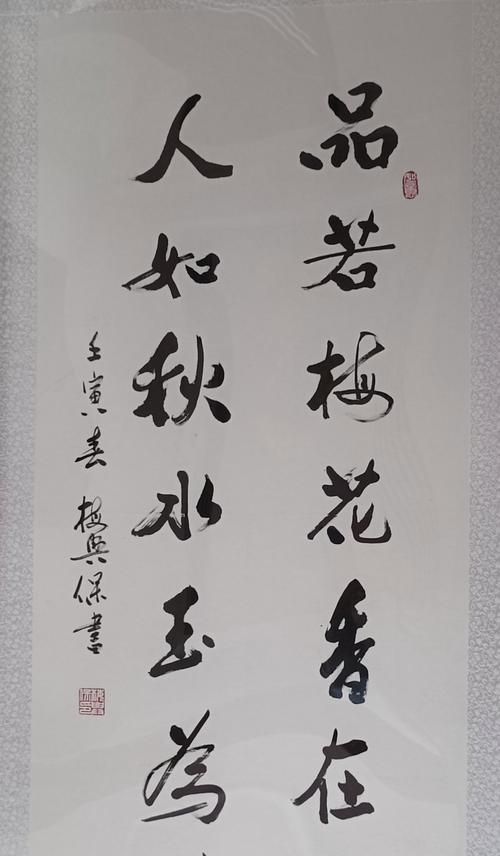 品若梅花香在
人如秋水玉為
壬寅春 梅興保書